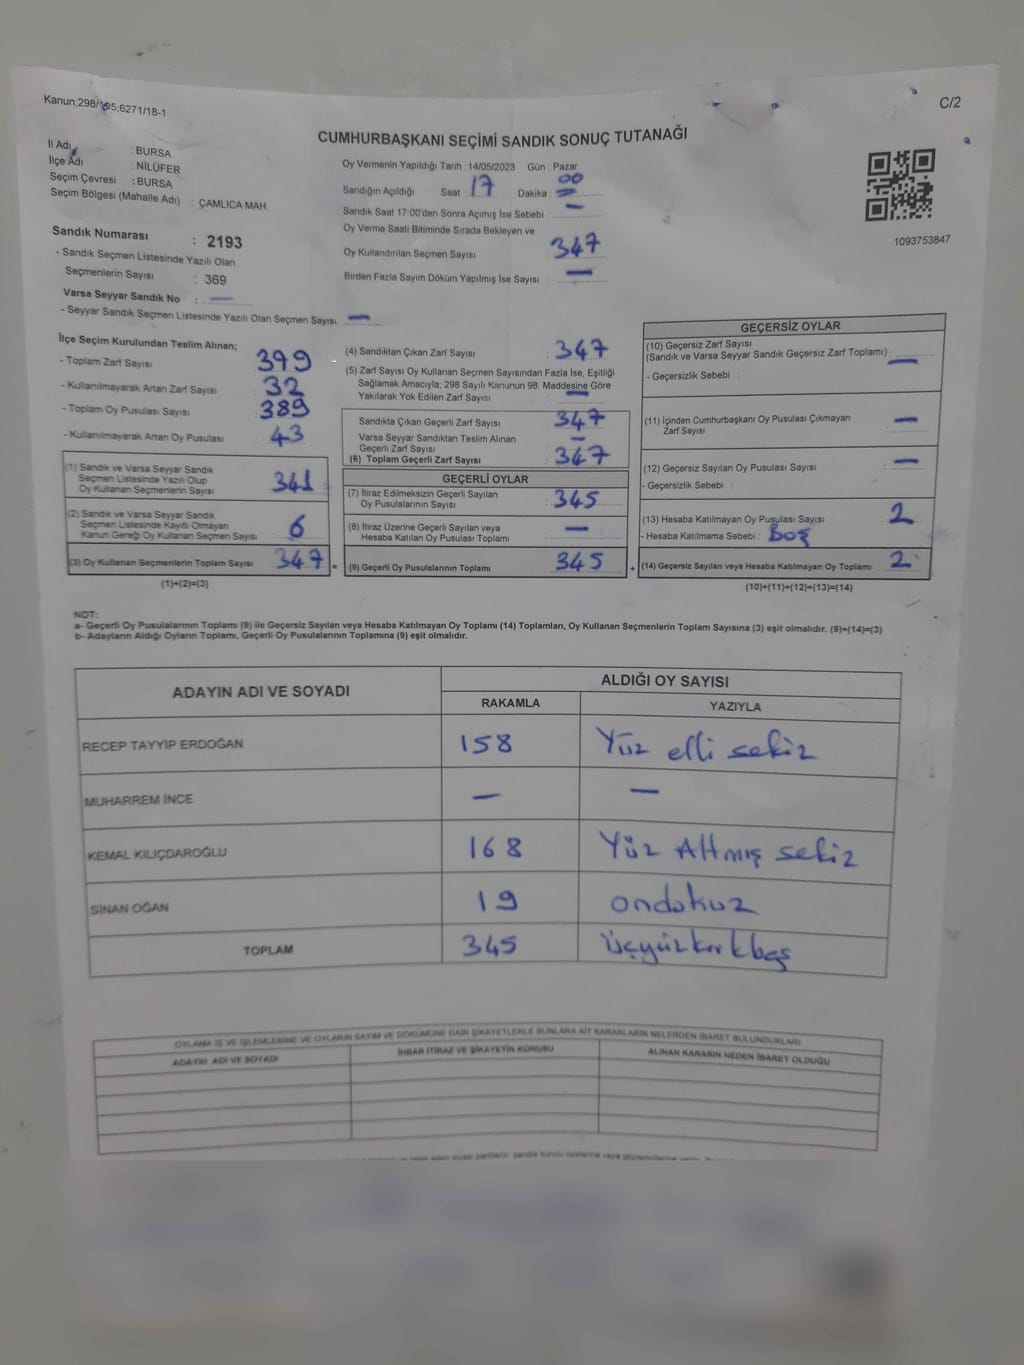 Kanun;298/105;6271/18-1
C/2
CUMHURBAŞKANI SEÇİMİ SANDIK SONUÇ TUTANAĞI
İl Adı : BURSA
İlçe Adı : NİLÜFER
Seçim Çevresi : BURSA
Seçim Bölgesi (Mahalle Adı) : ÇAMLICA MAH.
Sandık Numarası : 2193
- Sandık Seçmen Listesinde Yazılı Olan
Seçmenlerin Sayısı : 369
Varsa Seyyar Sandık No : —
- Seyyar Sandık Seçmen Listesinde Yazılı Olan Seçmen Sayısı: —
Oy Vermenin Yapıldığı Tarih : 14/05/2023 Gün : Pazar
Sandığın Açıldığı Saat : 17 Dakika : 00
Sandık Saat 17:00'den Sonra Açımış İse Sebebi : —
Oy Verme Saati Bitiminde Sırada Bekleyen ve
Oy Kullandırılan Seçmen Sayısı : 347
Birden Fazla Sayım Döküm Yapılmış İse Sayısı : —
1093753847
İlçe Seçim Kurulundan Teslim Alınan;
- Toplam Zarf Sayısı : 379
- Kullanılmayarak Artan Zarf Sayısı : 32
- Toplam Oy Pusulası Sayısı : 389
- Kullanılmayarak Artan Oy Pusulası : 43
(1) Sandık ve Varsa Seyyar Sandık
Seçmen Listesinde Yazılı Olup
Oy Kullanan Seçmenlerin Sayısı : 341
(2) Sandık ve Varsa Seyyar Sandık
Seçmen Listesinde Kayıtlı Olmayan
Kanun Gereği Oy Kullanan Seçmen Sayısı : 6
(3) Oy Kullanan Seçmenlerin Toplam Sayısı : 347
(1)+(2)=(3)
(4) Sandıktan Çıkan Zarf Sayısı : 347
(5) Zarf Sayısı Oy Kullanan Seçmen Sayısından Fazla İse, Eşitliği
Sağlamak Amacıyla; 298 Sayılı Kanunun 98. Maddesine Göre
Yakılarak Yok Edilen Zarf Sayısı : —
Sandıkta Çıkan Geçerli Zarf Sayısı : 347
Varsa Seyyar Sandıktan Teslim Alınan
Geçerli Zarf Sayısı : —
(6) Toplam Geçerli Zarf Sayısı : 347
GEÇERLİ OYLAR
(7) İtiraz Edilmeksizin Geçerli Sayılan
Oy Pusulalarının Sayısı : 345
(8) İtiraz Üzerine Geçerli Sayılan veya
Hesaba Katılan Oy Pusulası Toplamı : —
= (9) Geçerli Oy Pusulalarının Toplamı : 345
GEÇERSİZ OYLAR
(10) Geçersiz Zarf Sayısı
(Sandık ve Varsa Seyyar Sandık Geçersiz Zarf Toplamı) : —
- Geçersizlik Sebebi :
(11) İçinden Cumhurbaşkanı Oy Pusulası Çıkmayan
Zarf Sayısı : —
(12) Geçersiz Sayılan Oy Pusulası Sayısı : —
- Geçersizlik Sebebi :
(13) Hesaba Katılmayan Oy Pusulası Sayısı : 2
- Hesaba Katılmama Sebebi : Boş
+ (14) Geçersiz Sayılan veya Hesaba Katılmayan Oy Toplamı : 2
(10)+(11)+(12)+(13)=(14)
NOT:
a- Geçerli Oy Pusulalarının Toplamı (9) ile Geçersiz Sayılan veya Hesaba Katılmayan Oy Toplamı (14) Toplamları, Oy Kullanan Seçmenlerin Toplam Sayısına (3) eşit olmalıdır. (9)+(14)=(3)
b- Adayların Aldığı Oyların Toplamı, Geçerli Oy Pusulalarının Toplamına (9) eşit olmalıdır.
ADAYIN ADI VE SOYADI
ALDIĞI OY SAYISI
RAKAMLA YAZIYLA
RECEP TAYYİP ERDOĞAN 158 Yüz elli sekiz
MUHARREM İNCE — —
KEMAL KILIÇDAROĞLU 168 Yüz Altmış sekiz
SİNAN OĞAN 19 ondokuz
TOPLAM 345 üçyüzkırkbeş
OYLAMA İŞ VE İŞLEMLERİNE VE OYLARIN SAYIM VE DÖKÜMÜNE DAİR ŞİKAYETLERLE BUNLARA AİT KARARLARIN NELERDEN İBARET BULUNDUKLARI
ADAYIN ADI VE SOYADI İHBAR İTİRAZ VE ŞİKAYETİN KONUSU ALINAN KARARIN NEDEN İBARET OLDUĞU